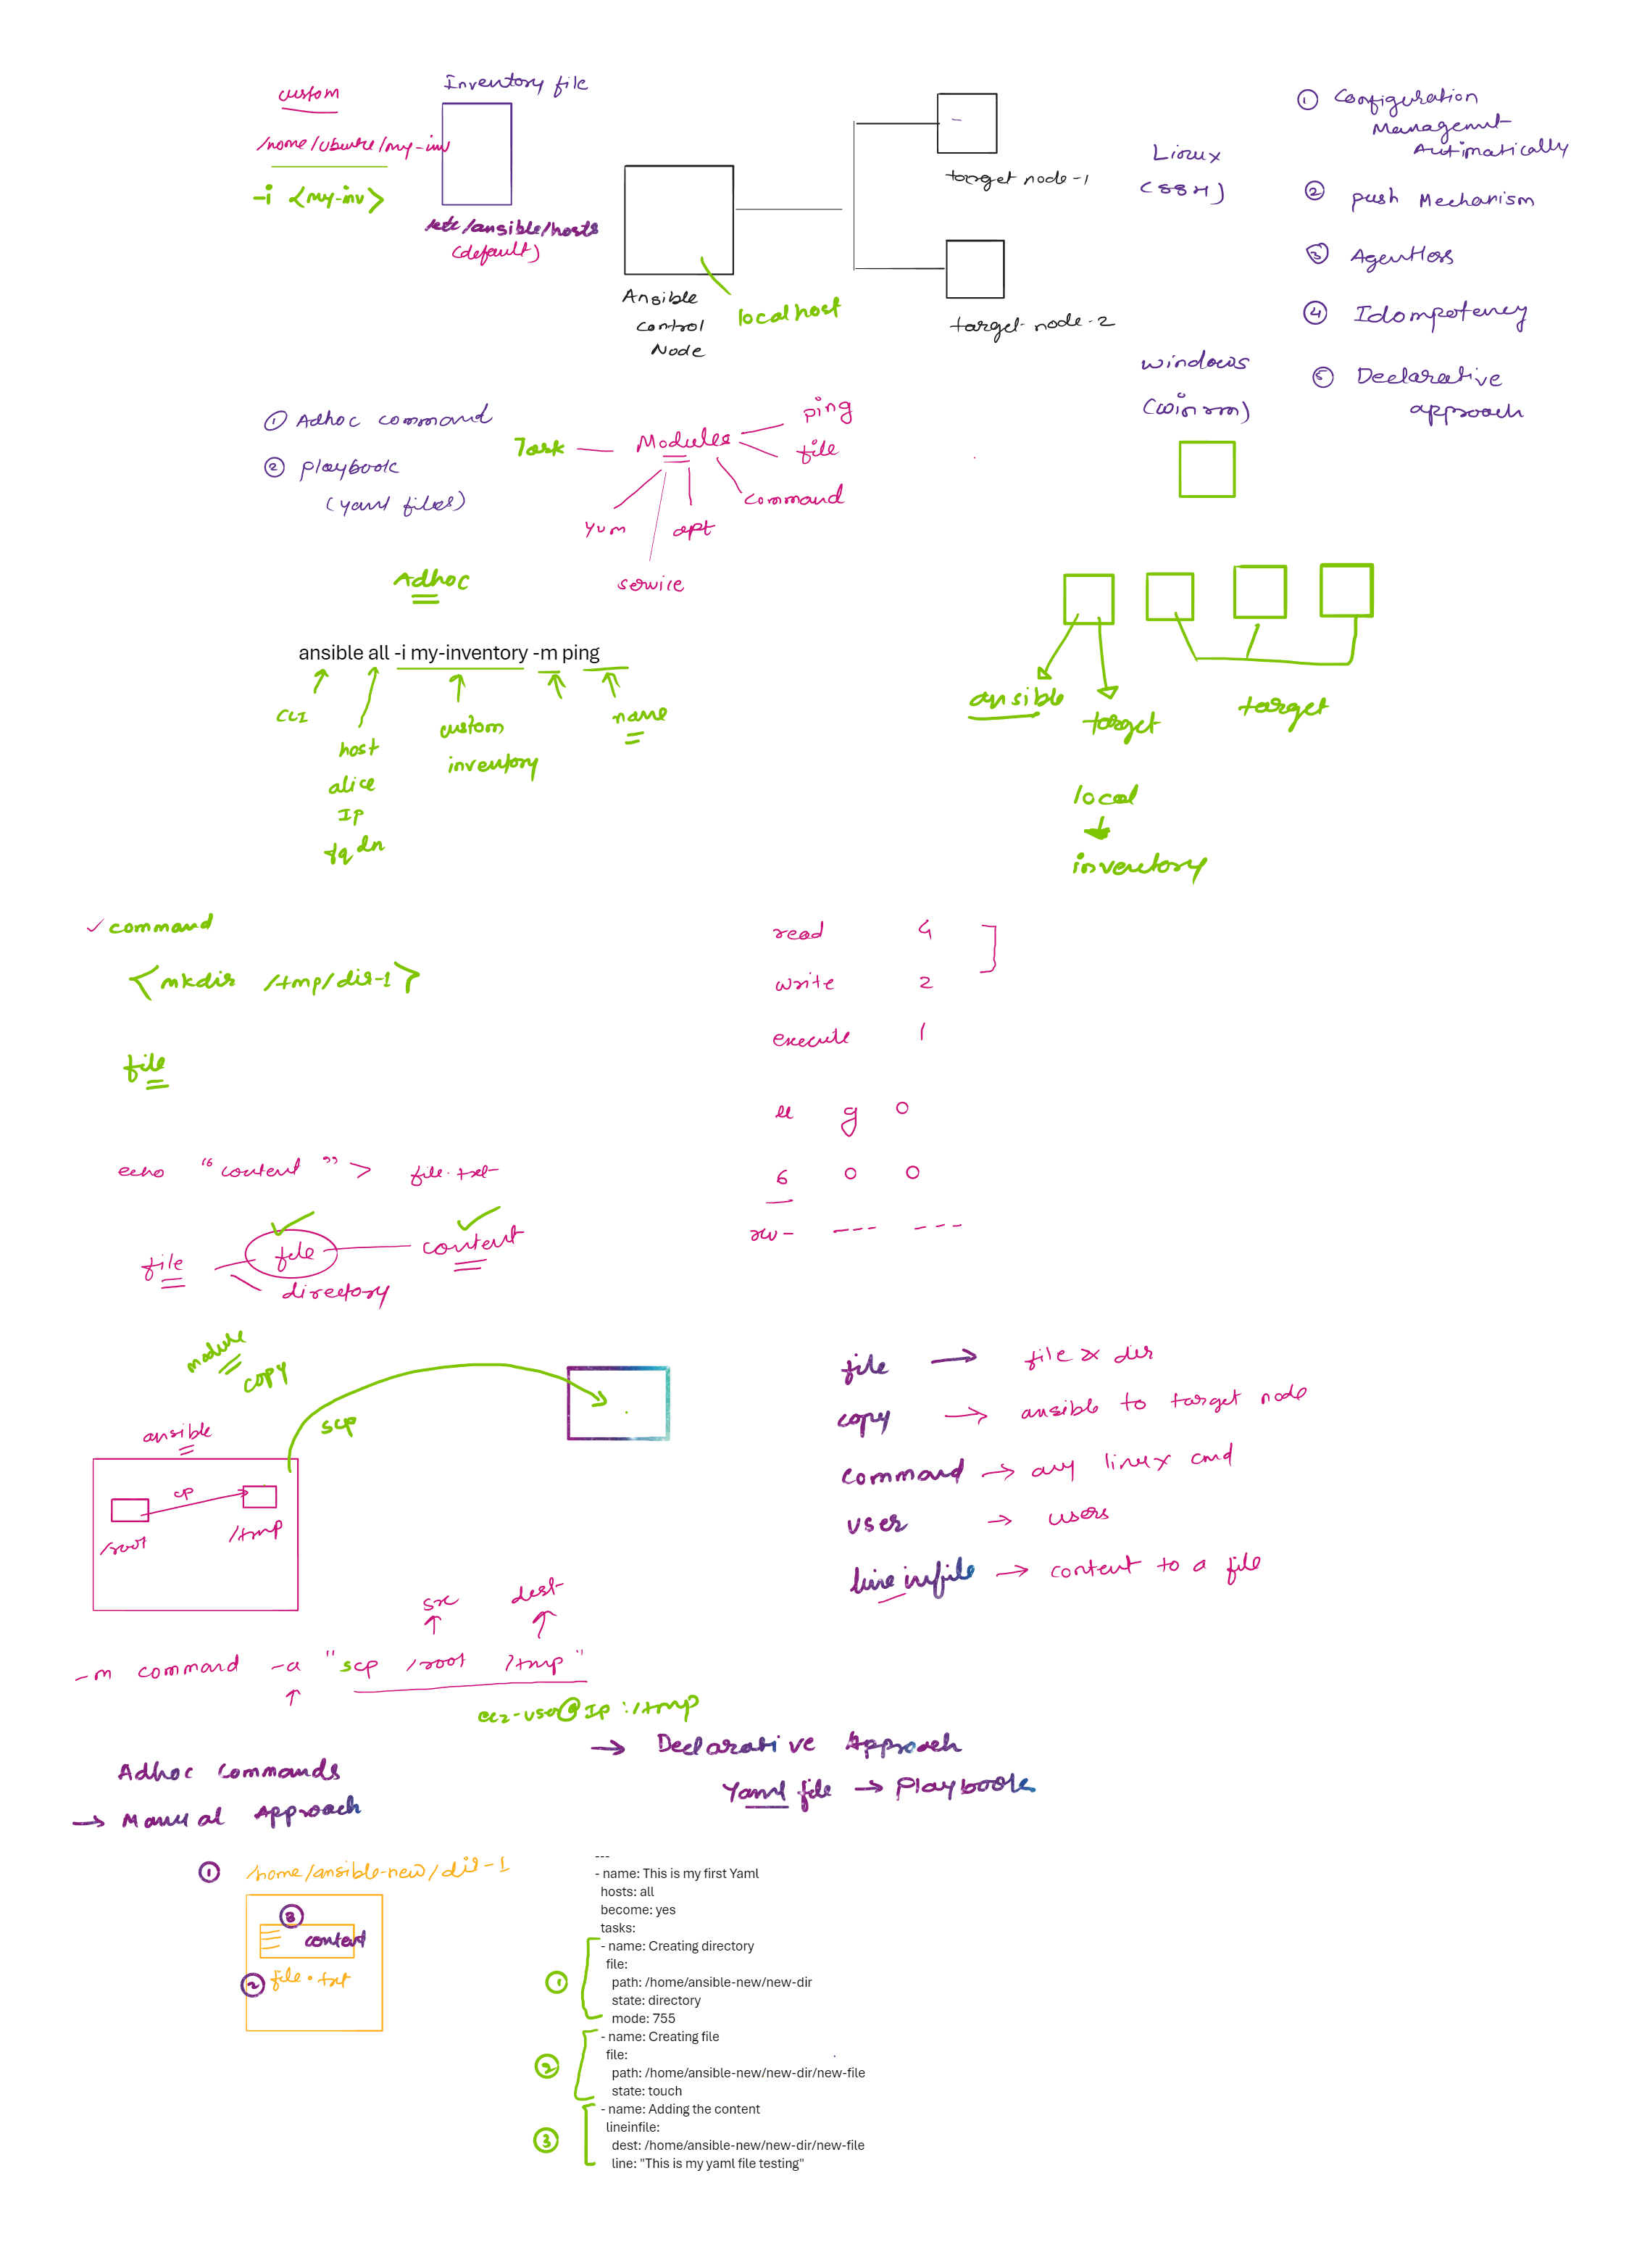 Inventory file
custom
/home/ubuntu/my-inv
-i <my-inv>
/etc/ansible/hosts
(default)
Ansible
Control
Node
localhost
target node-1
target node-2
Linux
(SSH)
windows
(winrm)
① Configuration
Managemnt
Automatically
② push Mechanism
③ Agentless
④ Idompotency
⑤ Declarative
approach
① Adhoc command
② playbook
(yaml files)
Task
Modules
ping
file
command
apt
yum
service
Adhoc
ansible all -i my-inventory -m ping
CLI
host
alice
IP
fqdn
custom
inventory
name
ansible
target
target
local
inventory
✓ command
<mkdir /tmp/dir-1>
file
read 4
write 2
execute 1
u g o
6 0 0
rw- --- ---
echo "content" > file.txt
file
file
content
directory
module
copy
scp
ansible
cp
/root
/tmp
file → file & dir
copy → ansible to target node
command → any linux cmd
user → users
lineinfile → content to a file
src
dest
-m command -a "scp /root /tmp"
ec2-user@IP:/tmp
Adhoc Commands
→ Manual Approach
→ Declarative Approach
Yaml file → Playbook
① /home/ansible-new/dir-1
③
content
② file.txt
---
- name: This is my first Yaml
hosts: all
become: yes
tasks:
- name: Creating directory
file:
① path: /home/ansible-new/new-dir
state: directory
mode: 755
- name: Creating file
file:
② path: /home/ansible-new/new-dir/new-file
state: touch
- name: Adding the content
lineinfile:
③ dest: /home/ansible-new/new-dir/new-file
line: "This is my yaml file testing"